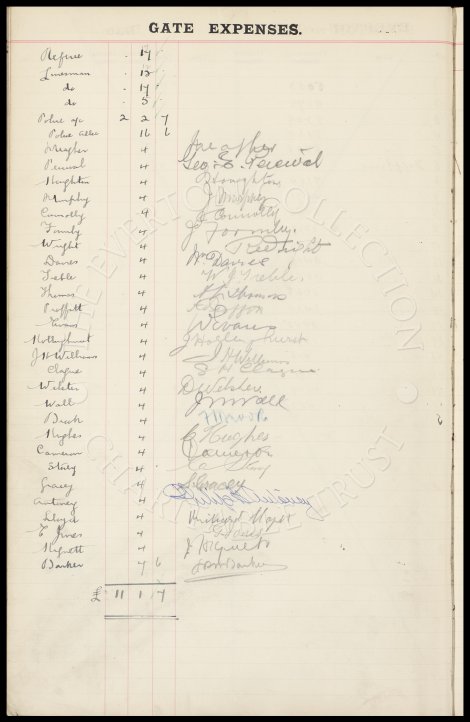 GATE EXPENSES.
Referee 17
Linesman 12
do 17
do 5
Police a/c 2 2 7
Police Allce 16 6
Meagher 4
Percival 4 Geo. E. Percival
Houghton 4 Houghton
Murphy 4 J Murphy
Connolly 4 J Connolly
Formby 4 J Formby
Wright 4 Wright
Davies 4 Wm Davies
Treble 4 W. J. Treble
Thomas 4 Thomas
Proffitt 4
Evans 4 W Evans
Hollinghurst 4 J Hollinghurst
J H Williams 4 J H Williams
Clague 4 E H Clague
Webster 4 D Webster
Wall 4 J Wall
Brook 4 Brook
Hughes 4 E Hughes
Cameron 4 Cameron
Story 4 Story
Gracey 4 Gracey
4
Lloyd 4 Lloyd
E Jones 4 Jones
4
Barker 7 6 Barker
£ 11 1 7
THE EVERTON COLLECTION
CHARITABLE TRUST